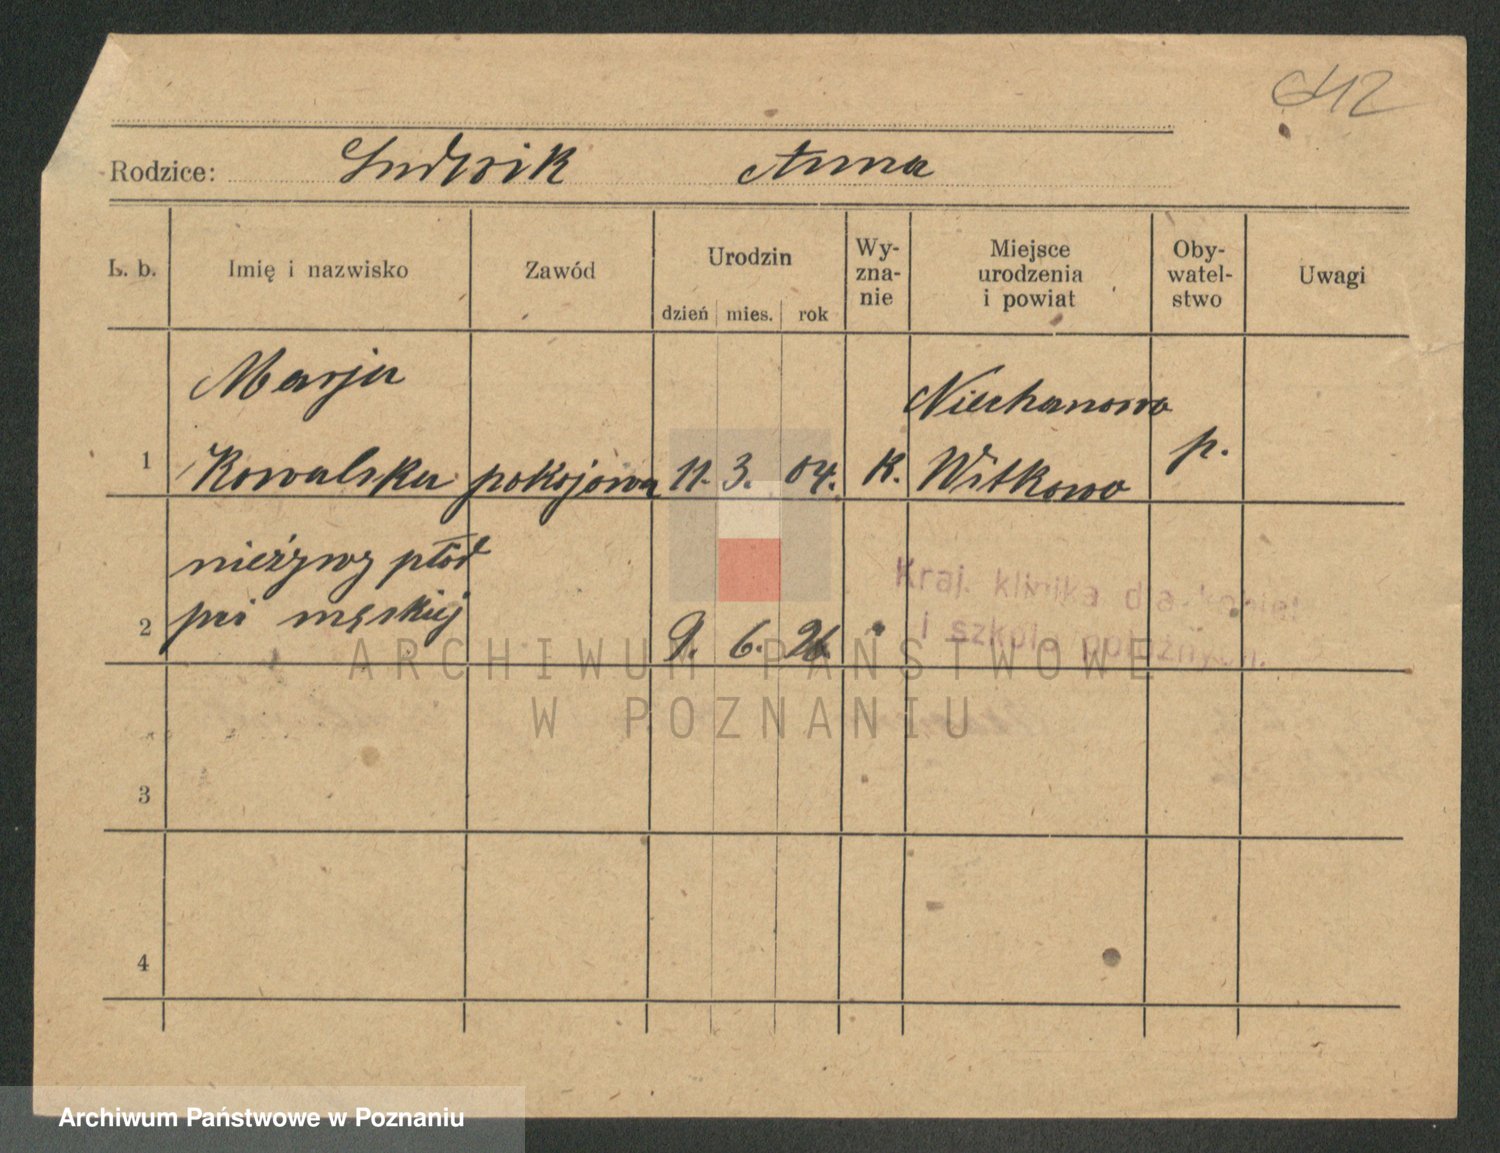 642
Rodzice: Ludwik Anna
L. b. Imię i nazwisko Zawód Urodzin dzień mies. rok Wy-
zna-
nie Miejsce
urodzenia
i powiat Oby-
watel-
stwo Uwagi
Marja Niechanowo
1 Kowalska pokojowa 11. 3. 04. K. Witkowo p.
nieżywy płód
2 płci męskiej 9. 6. 26.
Kraj. klinika dla kobiet
i szkoła położnych.
3
4
ARCHIWUM PAŃSTWOWE
W POZNANIU
Archiwum Państwowe w Poznaniu